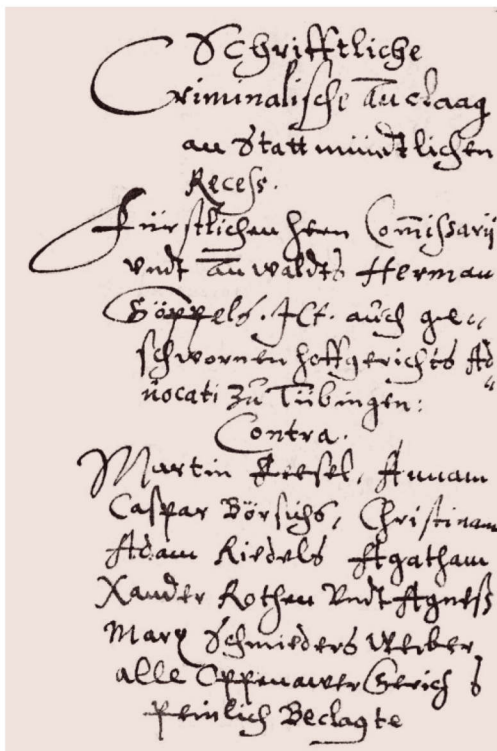 Schrifftliche
Criminalische Anclaag
an Statt mündtlichen
Recess.
Fürstlichen herrn Comissarij
vndt Anwaldts Herman
Göppels. JCt. auch ge„
schwornen hoffgerichts Ad„
uocati zu Tübingen:
Contra.
Martin Annam
Caspar Börsichs, Christinam
Adam Riedels Agatham
Xander Rothen Vndt Agneß
Marx Schmieders Weiber,
alle Oppenawer Gerichts
Peinlich Beclagte